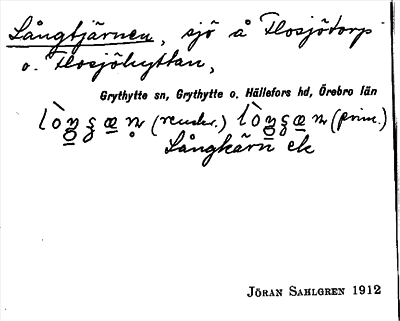 Långtjärnen, sjö å Flosjötorp
o. Flosjöhyttan,
Grythytte sn, Grythytte o. Hällefors hd, Örebro län
(sender.) (prim.)
Långkärn ek
JÖRAN SAHLGREN 1912